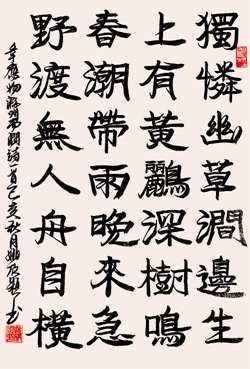 獨憐幽草澗邊生
上有黃鸝深樹鳴
春潮帶雨晚來急
野渡無人舟自橫
韋應物滁州西澗詩一首 秋月 書